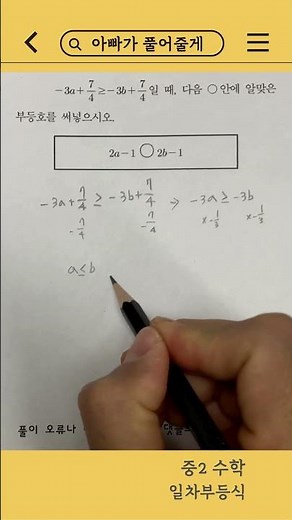 아빠가 풀어줄게
-3a+7/4≥-3b+7/4일 때, 다음 ○안에 알맞은
부등호를 써넣으시오.
2a-1 ○ 2b-1
-3a+7/4 ≥ -3b+7/4 ⇒ -3a ≥ -3b
-7/4 -7/4 ×-1/3 ×-1/3
a≤b
풀이 오류나
중2 수학
일차부등식